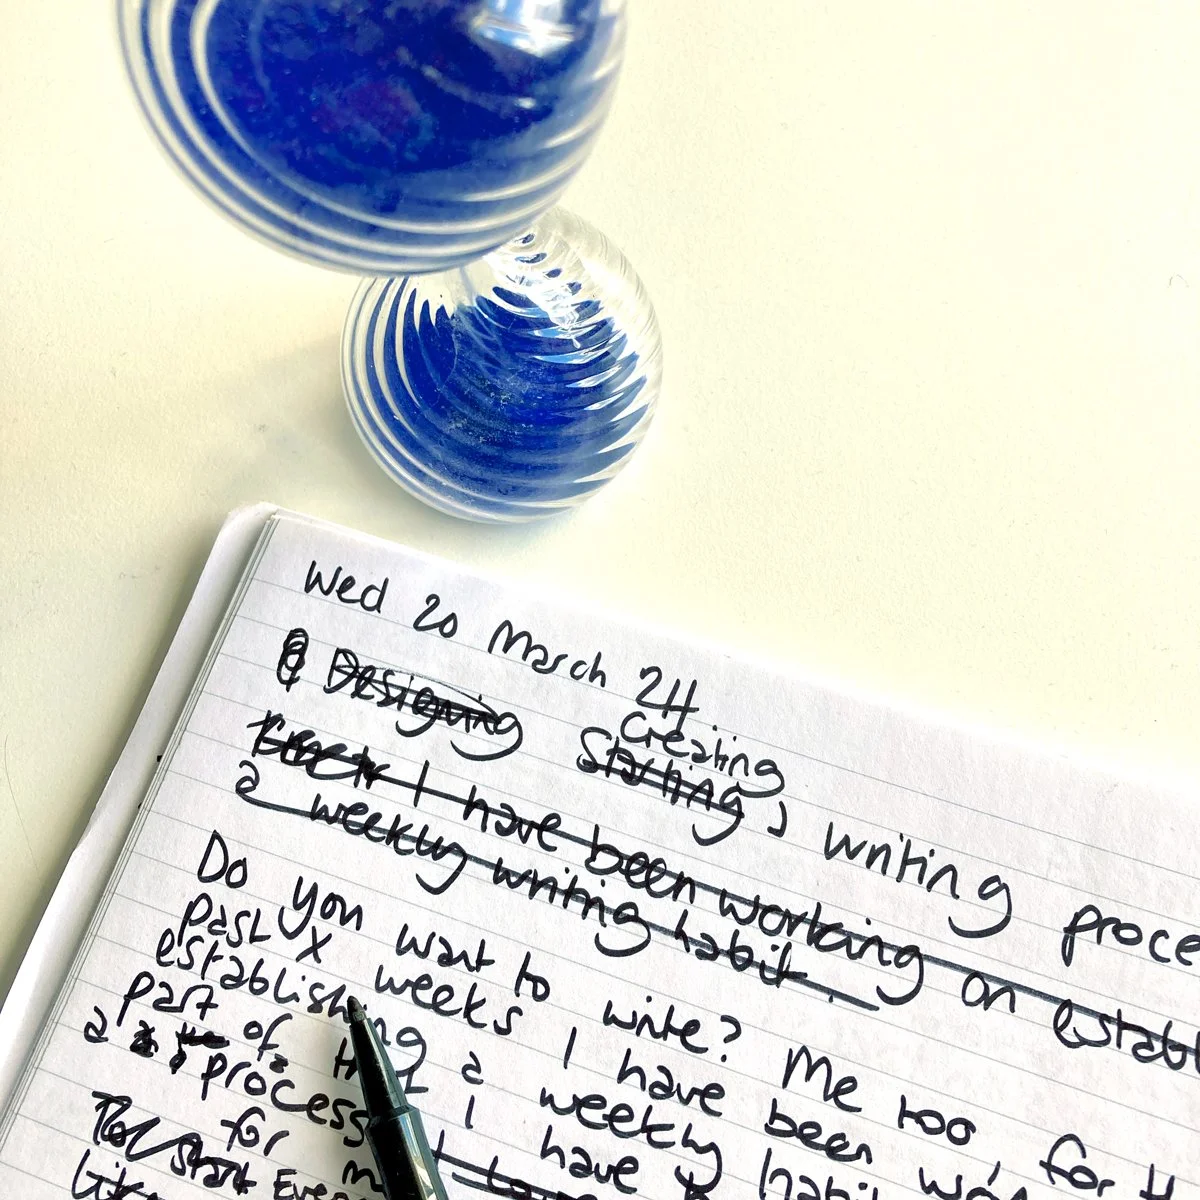 Wed 20 March 24
Designing Starting Creating a writing proce
I have been working on establ
a weekly writing habit.
Do you want to write? Me too, for th
past X weeks I have been wor
establishing a weekly habit
part of that I have
a process
for
The Start Every